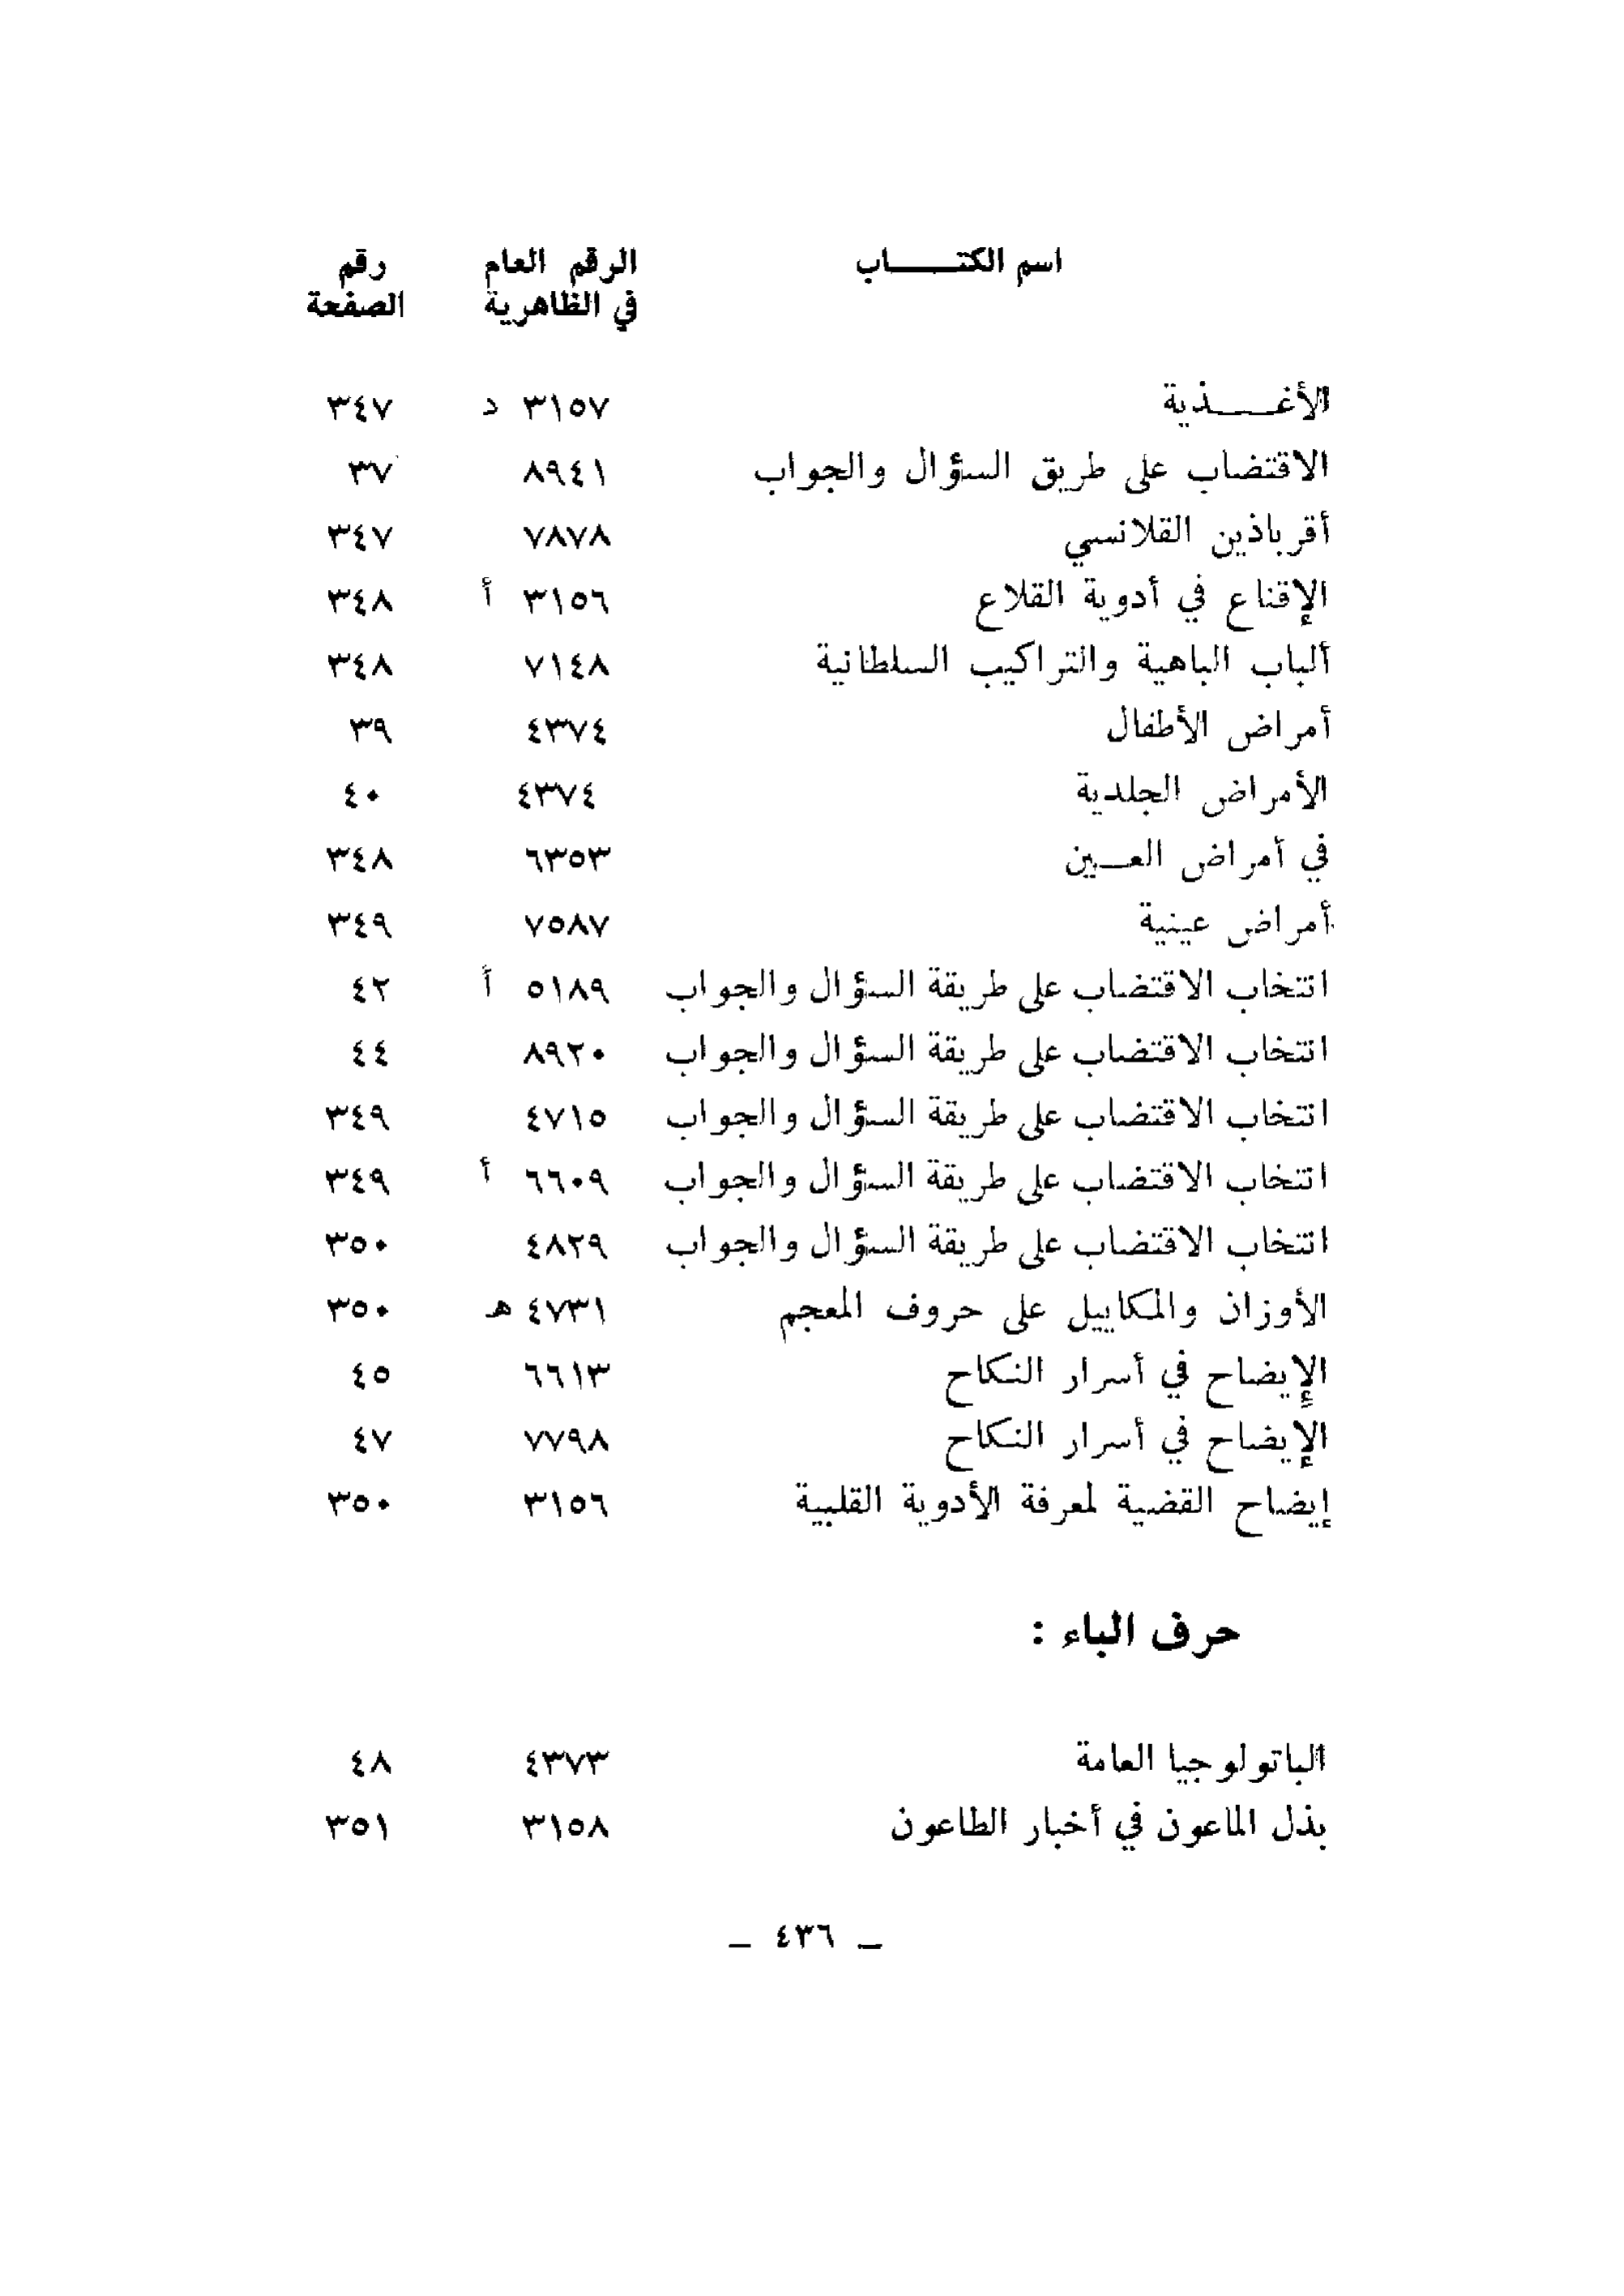 اسم الكتـــاب الرقم العام رقم
في الظاهرية الصفحة
الأغـــذية ٣١٥٧ د ٣٤٧
الاقتضاب على طريق السؤال والجواب ٨٩٤١ ٣٧
أقرباذين القلانسي ٧٨٧٨ ٣٤٧
الإقناع في أدوية القلاع ٣١٥٦ أ ٣٤٨
ألباب الباهية والتراكيب السلطانية ٧١٤٨ ٣٤٨
أمراض الأطفال ٤٣٧٤ ٣٩
الأمراض الجلدية ٤٣٧٤ ٤٠
في أمراض العــين ٦٣٥٣ ٣٤٨
أمراض عينية ٧٥٨٧ ٣٤٩
انتخاب الاقتضاب على طريقة السؤال والجواب ٥١٨٩ أ ٤٢
انتخاب الاقتضاب على طريقة السؤال والجواب ٨٩٢٠ ٤٤
انتخاب الاقتضاب على طريقة السؤال والجواب ٤٧١٥ ٣٤٩
انتخاب الاقتضاب على طريقة السؤال والجواب ٦٦٠٩ أ ٣٤٩
انتخاب الاقتضاب على طريقة السؤال والجواب ٤٨٢٩ ٣٥٠
الأوزان والمكاييل على حروف المعجم ٤٧٣١ هـ ٣٥٠
الإيضاح في أسرار النكاح ٦٦١٣ ٤٥
الإيضاح في أسرار النكاح ٧٧٩٨ ٤٧
إيضاح القضية لمعرفة الأدوية القلبية ٣١٥٦ ٣٥٠
حرف الباء :
الباتولوجيا العامة ٤٣٧٣ ٤٨
بذل الماعون في أخبار الطاعون ٣١٥٨ ٣٥١
_ ٤٣٦ _